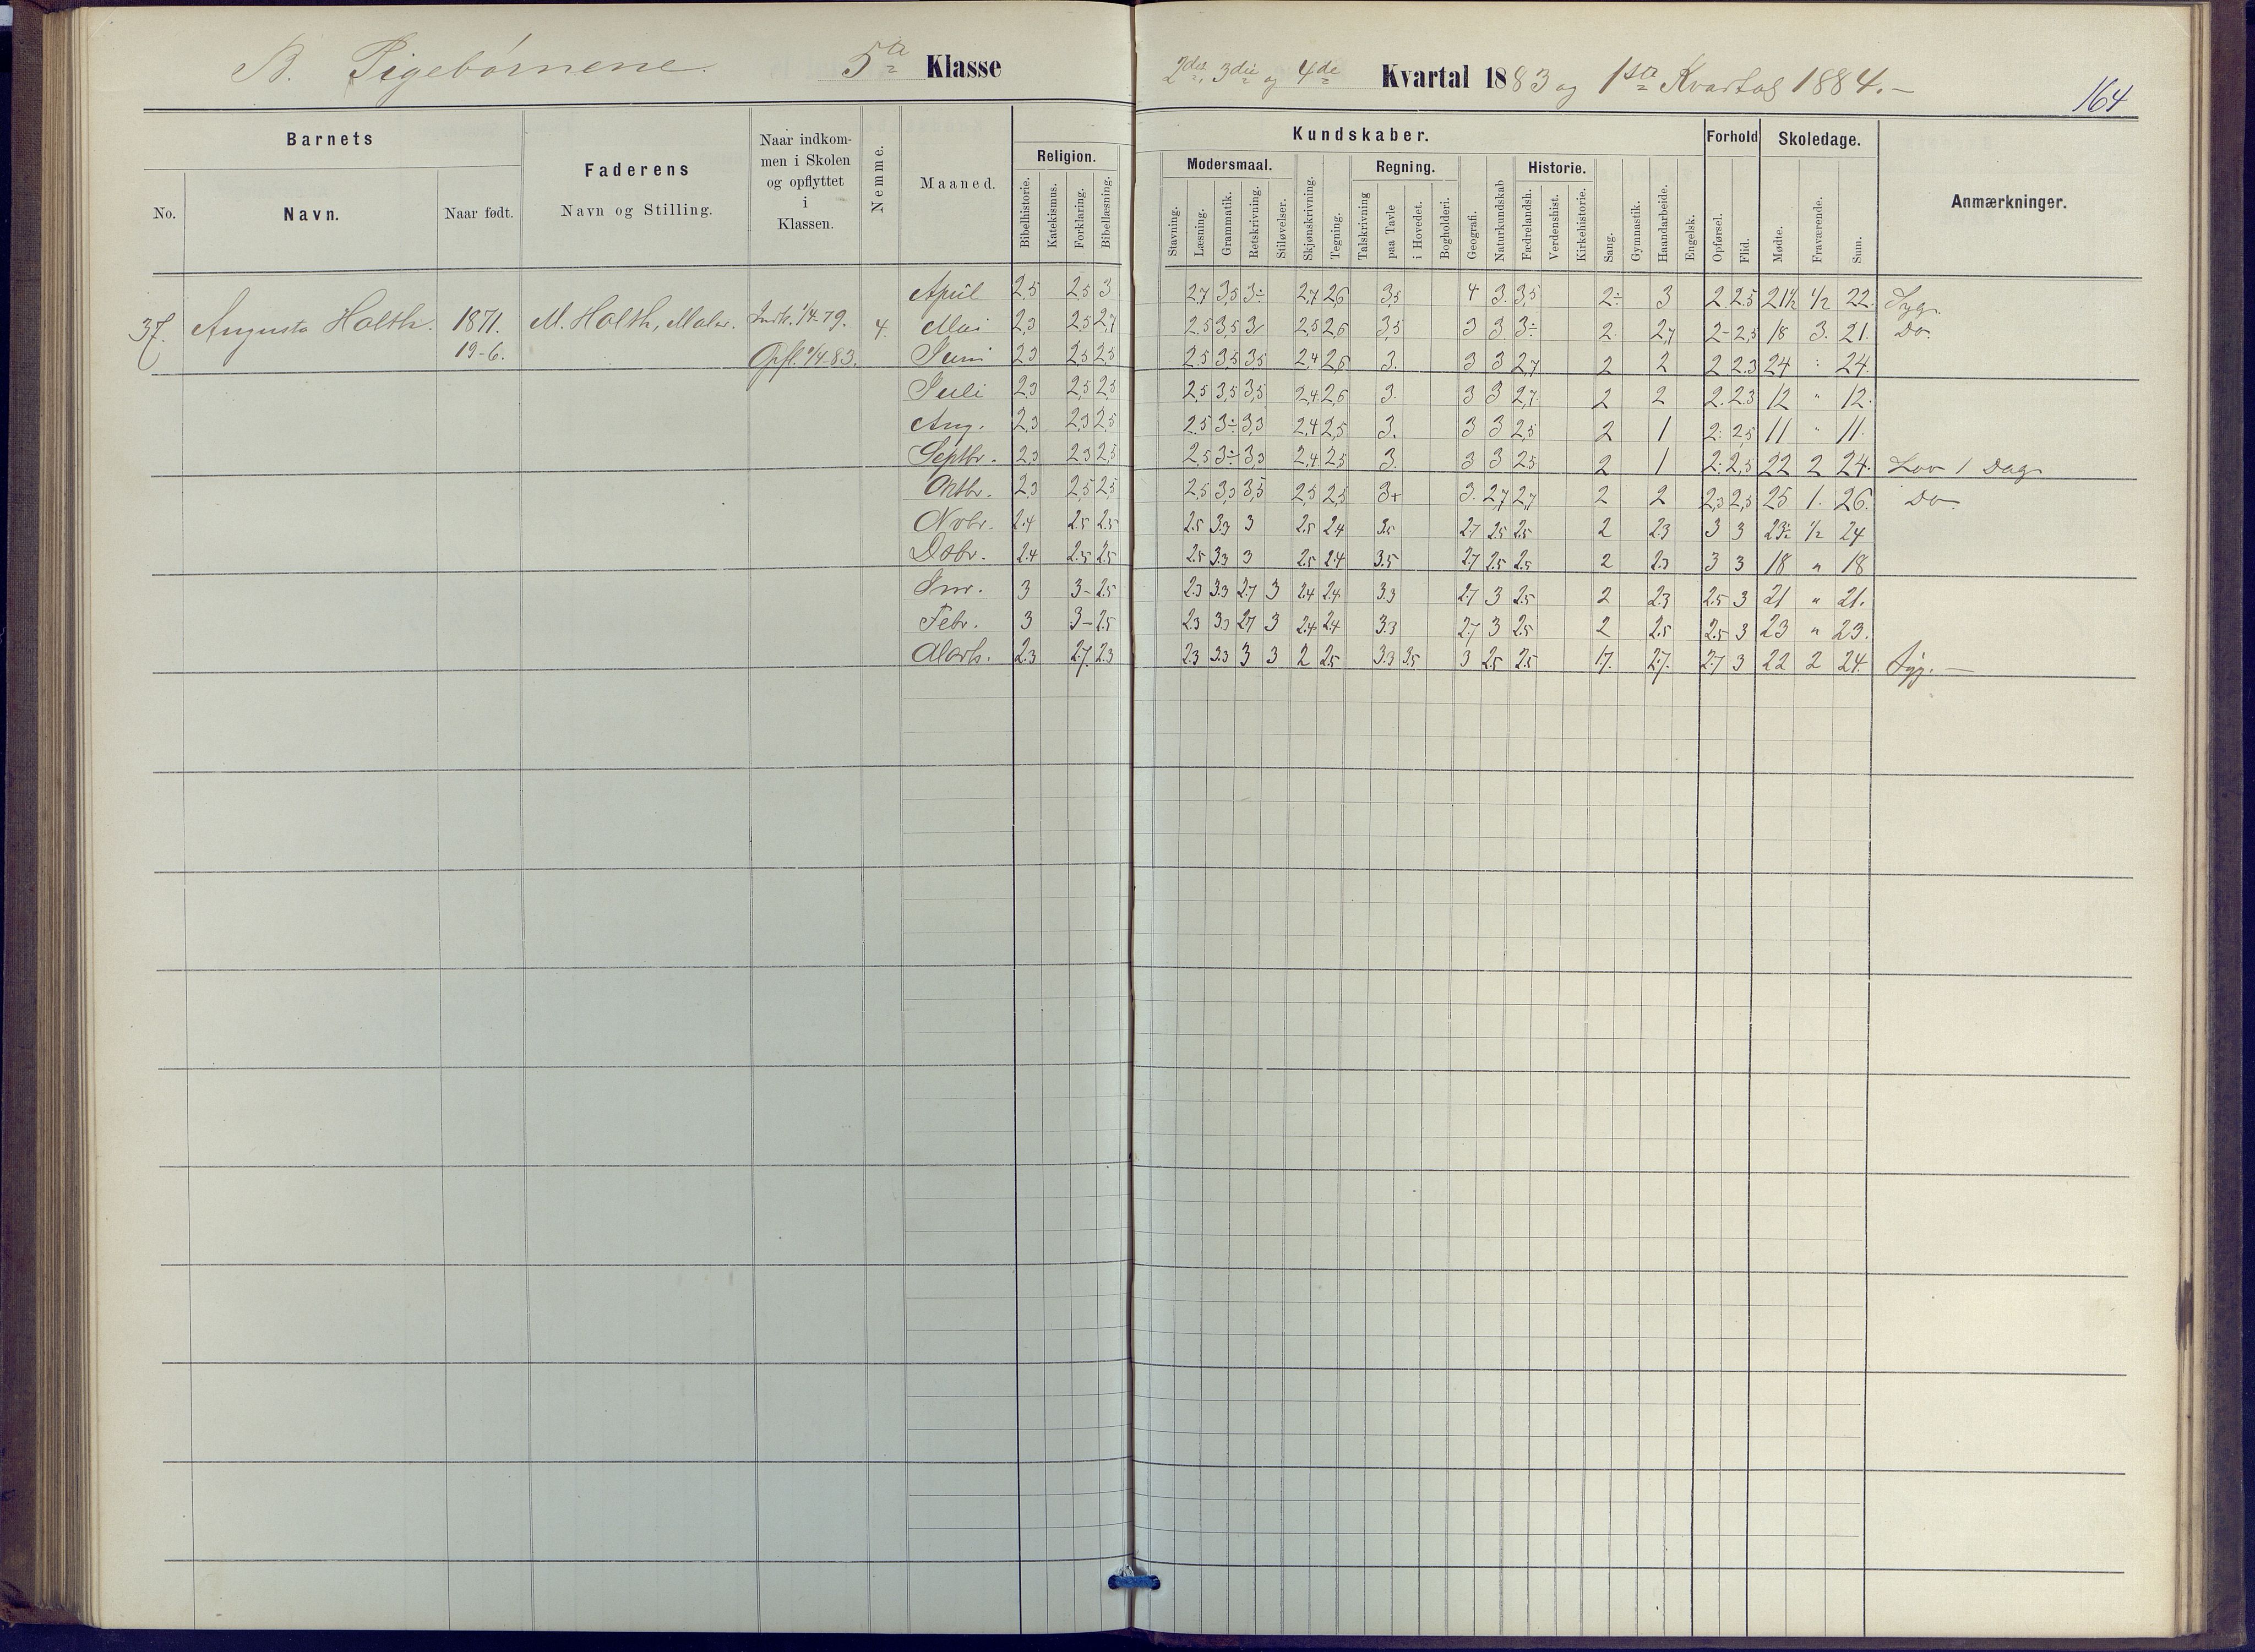 B. Pigebørnene. 5te Klasse 2det, 3die og 4de Kvartal 1883 og 1ste Kvartal 1884.-
164
Barnets
No.
Navn.
Naar født.
Faderens
Navn og Stilling.
Naar indkom-
men i Skolen
og opflyttet
i
Klassen.
Nemme.
Maaned.
Religion.
Bibelhistorie.
Katekismus.
Forklaring.
Bibellæsning.
Kundskaber.
Modersmaal.
Stavning.
Læsning.
Grammatik.
Retskrivning.
Stiløvelser.
Skjønskrivning.
Tegning.
Regning.
Talskrivning
paa Tavle
i Hovedet.
Bogholderi.
Geografi.
Naturkundskab
Historie.
Fædrelandsh.
Verdenshist.
Kirkehistorie.
Sang.
Gymnastik.
Haandarbeide.
Engelsk.
Forhold
Opførsel.
Flid.
Skoledage.
Mødte.
Fraværende.
Sum.
Anmærkninger.
37. Augusta Holth. 1871. M. Holth, Maler. Indk. 1/4-79. 4.
19-6. Opfl. 1/4-83.
April 2,5 2,5 3 2,7 3,5 3÷ 2,7 2,6 3,5 4 3. 3,5 2÷ 3 2 2.5 21½ ½ 22. Syg.
Mai 2,3 2,5 2,7 2.5 3,5 3/ 2,5 2,6 3,5 3 3 3÷ 2. 2,7 2- 2,5 18 3. 21. Do.
Juni 2,3 2,5 2,5 2.5 3,5 3,5 2,4 2,6 3. 3 3 2,7 2 2 2 2.3 24 " 24.
Juli 2,3 2,5 2,5 2,5 3,5 3,5 2,4 2,6 3. 3 3 2,7 2 2 2. 2.3 12 " 12.
Aug. 2,3 2,3 2,5 2.5 3÷ 3,3 2,4 2,5 3. 3 3 2,5 2 1 2: 2,5 11 " 11.
Septbr. 2,3 2,3 2,5 2,5 3÷ 3,3 2,4 2,5 3. 3 3 2,5 2 1 2: 2,5 22 2 24. Lov 1 Dag
Oktbr. 2,3 2,5 2,5 2,5 3,3 3,5 2,5 2,5 3+ 3. 2,7 2,7 2 2 2,3 2,5 25 1. 26. Do.
Nvbr. 2.4 2.5 2.5 2.5 3.3 3 2.5 2.4 3.5 2.7 2.5 2.5 2 2.3 3 3 23½ ½ 24
Dsbr. 2.4 2.5 2.5 2.5 3.3 3 2.5 2.4 3.5 2.7 2.5 2.5 2 2.3 3 3 18 " 18
Jnr. 3 3- 2.5 2.3 3.3 2.7 3 2.4 2.4 3.3 2.7 3 2.5 2 2.3 2.5 3 21 " 21.
Febr. 3 3- 2.5 2.3 3.3 2.7 3 2.4 2.4 3.3 2.7 3 2.5 2 2.5 2.5 3 23 " 23.
Marts. 2.3 2.7 2.3 2.3 3.3 3 3 2 2.5 3.3 3.5 3 2.5 2.5 1.7. 2.7. 2.7 3 22 2 24. Syg. —